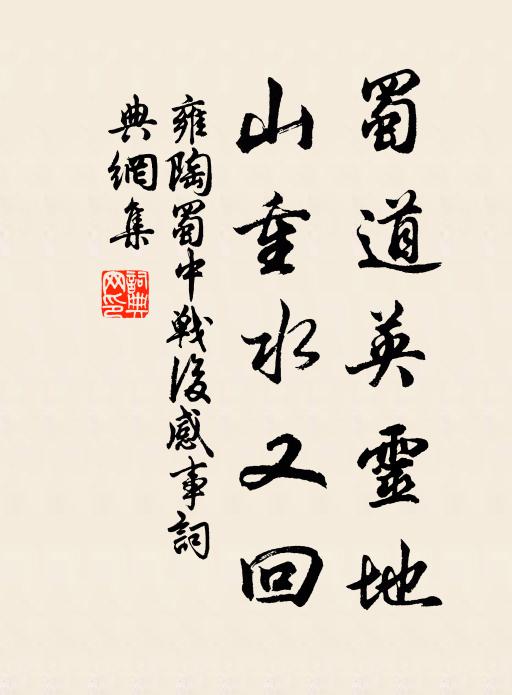 蜀道英靈地
山重水又回
雍陶蜀中戰後感事詞
典網集
詞典網印